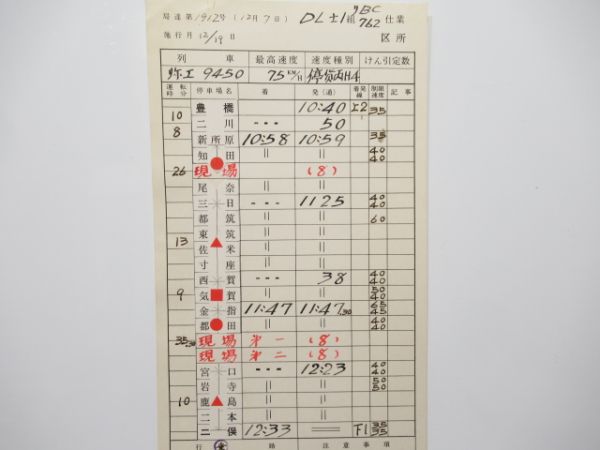 局達第1912号(12月7日) DL士1組 762仕業
施行月12/19日 区所
列車 最高速度 速度種別 けん引定数
9450 75KM/H
運転時分 停車場名 着 発(通) 着発線 制限速度 記事
豊橋 10:40 上2 35
10
二川 --- 50
8
新所原 10:58 10:59 35
知田 || || 40 40
26 現場 (8)
尾奈 || ||
三日 --- 1125 40 40
都筑 || || 60
東筑 || ||
13
佐米 || ||
寸座 || ||
西賀 --- 38 40 40
9 気賀 || || 50 40
金指 11:47 11:47.30 65 45
都田 || || 40 40
35.30 現場 第一 (8)
現場 第二 (8)
宮口 --- 12:23 40 40
岩寺 || || 50 50
10 鹿島 || ||
二本 || ||
二俣 12:33 == 下1 35 35
行 路 注意事項